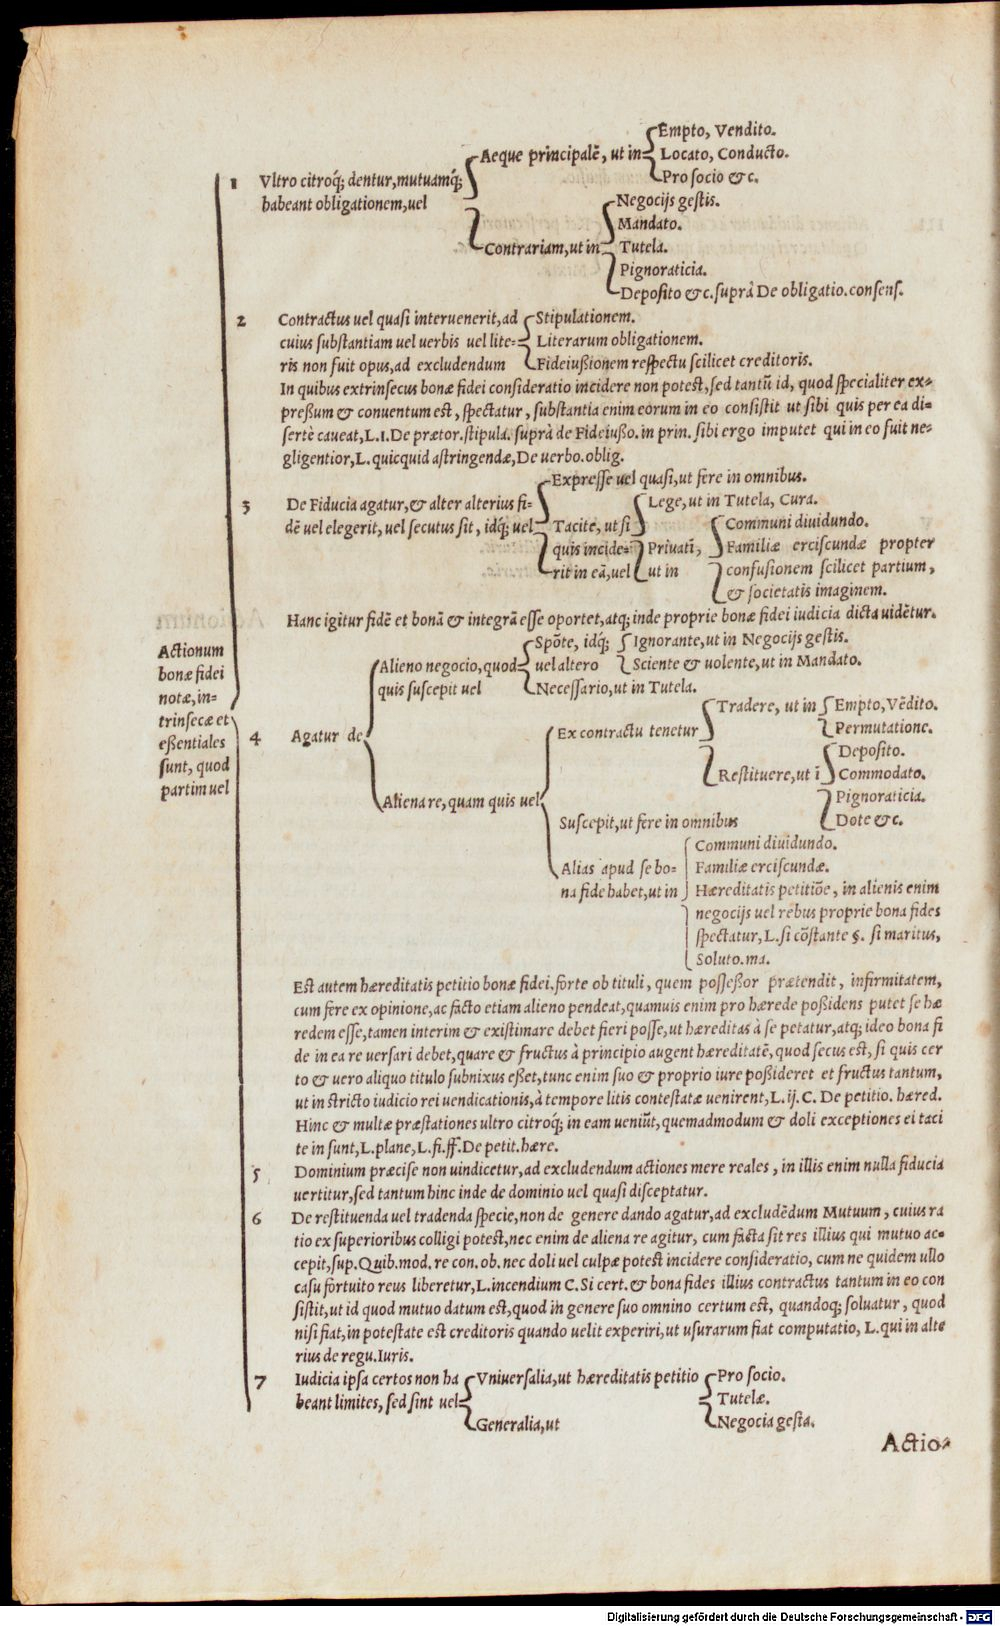 Actionum
bonæ fidei
notæ, in-
trinsecæ et
eßentiales
sunt, quod
partim uel
1 Vltro citroq́; dentur, mutuamq́;
habeant obligationem, uel
Aeque principalẽ, ut in
Empto, Vendito.
Locato, Conducto.
Pro socio &c.
Contrariam, ut in
Negocijs gestis.
Mandato.
Tutela.
Pignoraticia.
Deposito &c. suprà De obligatio. consens.
2 Contractus uel quasi interuenerit, ad
cuius substantiam uel uerbis uel lite-
ris non fuit opus, ad excludendum
Stipulationem.
Literarum obligationem.
Fideiußionem respectu scilicet creditoris.
In quibus extrinsecus bonæ fidei consideratio incidere non potest, sed tantũ id, quod specialiter ex-
preßum & conuentum est, spectatur, substantia enim eorum in eo consistit ut sibi quis per ea di-
sertè caueat, L.1. De prætor. stipula. suprà de Fideiußo. in prin. sibi ergo imputet qui in eo fuit ne-
gligentior, L. quicquid astringendæ, De uerbo. oblig.
3 De Fiducia agatur, & alter alterius fi-
dẽ uel elegerit, uel secutus sit, idq́; uel
Expresse uel quasi, ut fere in omnibus.
Tacite, ut si
quis incide-
rit in eã, uel
Lege, ut in Tutela, Cura.
Priuati,
ut in
Communi diuidundo.
Familiæ erciscundæ propter
confusionem scilicet partium,
& societatis imaginem.
Hanc igitur fidẽ et bonã & integrã esse oportet, atq; inde proprie bonæ fidei iudicia dicta uidẽtur.
4 Agatur de
Alieno negocio, quod
quis suscepit uel
Spõte, idq́;
uel altero
Ignorante, ut in Negocijs gestis.
Sciente & uolente, ut in Mandato.
Necessario, ut in Tutela.
Aliena re, quam quis uel
Ex contractu tenetur
Tradere, ut in
Empto, Vẽdito.
Permutatione.
Restituere, ut ĩ
Deposito.
Commodato.
Pignoraticia.
Dote &c.
Suscepit, ut fere in omnibus
Alias apud se bo-
na fide habet, ut in
Communi diuidundo.
Familiæ erciscundæ.
Hæreditatis petitiõe, in alienis enim
negocijs uel rebus proprie bona fides
spectatur, L. si cõstante §. si maritus,
Soluto. ma.
Est autem hæreditatis petitio bonæ fidei, forte ob tituli, quem possessor prætendit, infirmitatem,
cum fere ex opinione, ac facto etiam alieno pendeat, quamuis enim pro hærede poßidens putet se hæ
redem esse, tamen interim & existimare debet fieri posse, ut hæreditas à se petatur, atq; ideo bona fi
de in ea re uersari debet, quare & fructus à principio augent hæreditatẽ, quod secus est, si quis cer
to & uero aliquo titulo subnixus eßet, tunc enim suo & proprio iure poßideret et fructus tantum,
ut in stricto iudicio rei uendicationis, à tempore litis contestatæ uenirent, L. ij. C. De petitio. hæred.
Hinc & multæ præstationes ultro citroq́; in eam ueniũt, quemadmodum & doli exceptiones ei taci
te in sunt, L. plane, L. fi. ff. De petit. hære.
5 Dominium præcise non uindicetur, ad excludendum actiones mere reales, in illis enim nulla fiducia
uertitur, sed tantum hinc inde de dominio uel quasi disceptatur.
6 De restituenda uel tradenda specie, non de genere dando agatur, ad excludẽdum Mutuum, cuius ra
tio ex superioribus colligi potest, nec enim de aliena re agitur, cum facta sit res illius qui mutuo ac-
cepit, sup. Quib. mod. re con. ob. nec doli uel culpæ potest incidere consideratio, cum ne quidem ullo
casu fortuito reus liberetur, L. incendium C. Si cert. & bona fides illius contractus tantum in eo con
sistit, ut id quod mutuo datum est, quod in genere suo omnino certum est, quandoq; soluatur, quod
nisi fiat, in potestate est creditoris quando uelit experiri, ut usurarum fiat computatio, L. qui in alte
rius de regu. Iuris.
7 Iudicia ipsa certos non ha
beant limites, sed sint uel
Vniuersalia, ut hæreditatis petitio
Generalia, ut
Pro socio.
Tutelæ.
Negocia gesta.
Actio-
Digitalisierung gefördert durch die Deutsche Forschungsgemeinschaft - DFG